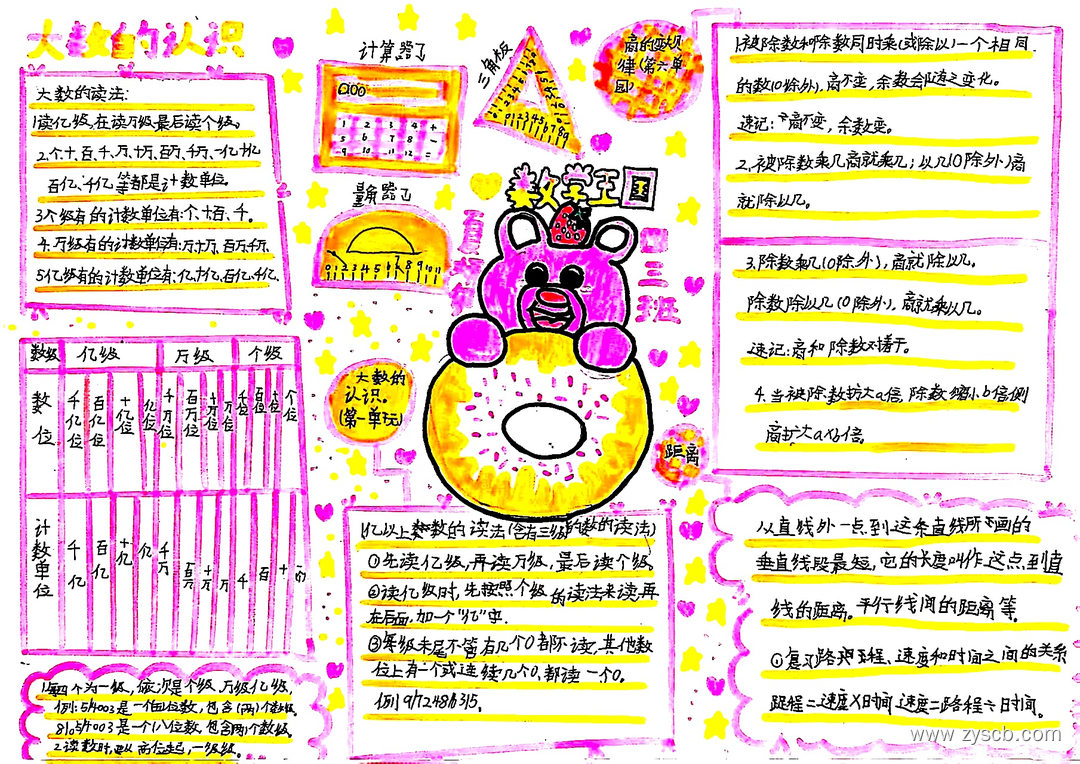 大数的认识
大数的读法:
1读亿级,在读万级,最后读个级。
2.个.十.百.千.万.十万.百万.千万.一亿.十亿
百亿.千亿.等都是计数单位。
3个级有的计数单位有:个.十.百.千。
4.万级有的计数单位有:万.十万.百万.千万.
5亿级有的计数单位有:亿.十亿.百亿.千亿.
数级 亿级 万级 个级
数位 千亿位 百亿位 十亿位 亿位 千万位 百万位 十万位 万位 千位 百位 十位 个位
计数单位 千亿 百亿 十亿 亿 千万 百万 十万 万 千 百 十
1.每四个为一级,依次是个级,万级,亿级,
2.读数时,
计算器
1 2 3 4 +
三角板
量角器
0 1 2 3 4 5 6 7 8 9 10 11
商的变
律(第六单
园)
数学王国
四三班
大数的
认识。
(第一单元)
距离
亿以上数的读法(含有三级的数的读法)
①先读亿级,再读万级,最后读个级。
②读亿级时,先按照个级的读法来读,再
在后面,加一个“亿”字.
③每级末尾不管有几个0都不读,其他数
位上有一个或连续几个0,都读一个0。
1.被除数和除数同时乘(或除以)一个相同
的数(0除外),商不变,余数会随之变化。
速记:商不变,余数变。
2.被除数乘几商就乘几;以几(0除外)商
就除以几。
3.除数乘几(0除外),商就除以几。
除数除以几(0除外),商就乘以几。
速记:商和除数对着干。
4.当被除数扩大a倍,除数缩小b倍则
商扩大axb倍。
从直线外一点到这条直线所画的
垂直线段最短,它的长度叫作这点到直
线的距离。平行线间的距离等。
①复习路程、速度和时间之间的关系
路程=速度X时间 速度=路程÷时间。
www.zyscb.com